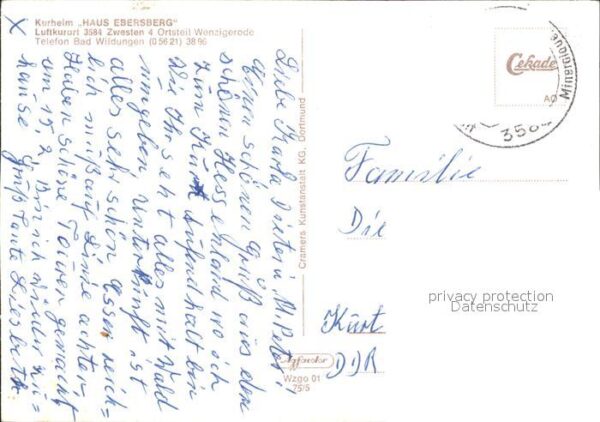 Kurheim „HAUS EBERSBERG"
Luftkurort 3584 Zwesten 4 Ortsteil Wenzigerode
Telefon Bad Wildungen (05621) 3896
X
Liebe Karla Dieter u. M. Peter!
Einen schönen Gruß aus dem
schönen Hessenland wo ich
zum Kur Aufenthalt bin
Wie Ihr seht alles mit Wald
umgeben Unterkunft ist
alles sehr schön Essen reich-
lich muß auf Linie achten
Haben schöne Touren gemacht
am 15.2 bin ich wieder zu=
hause Gruß Tante Liesbeth
Cramers Kunstanstalt KG, Dortmund
Wzgo 01
75/5
Cekade
AO
358
Familie
Die
Kurt
DDR
privacy protection
Datenschutz